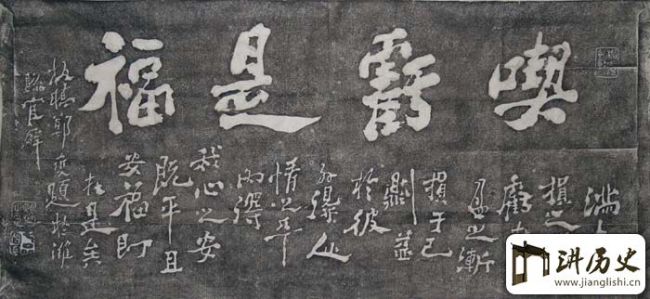 喫虧是福
滿
損之
虧
盈之漸
損于己
則益
於彼
外得人
情之平
内得
我心之安
既平且
安福即
在是矣
板橋鄭燮題於濰
縣官廨
讲历史
www.jianglishi.cn